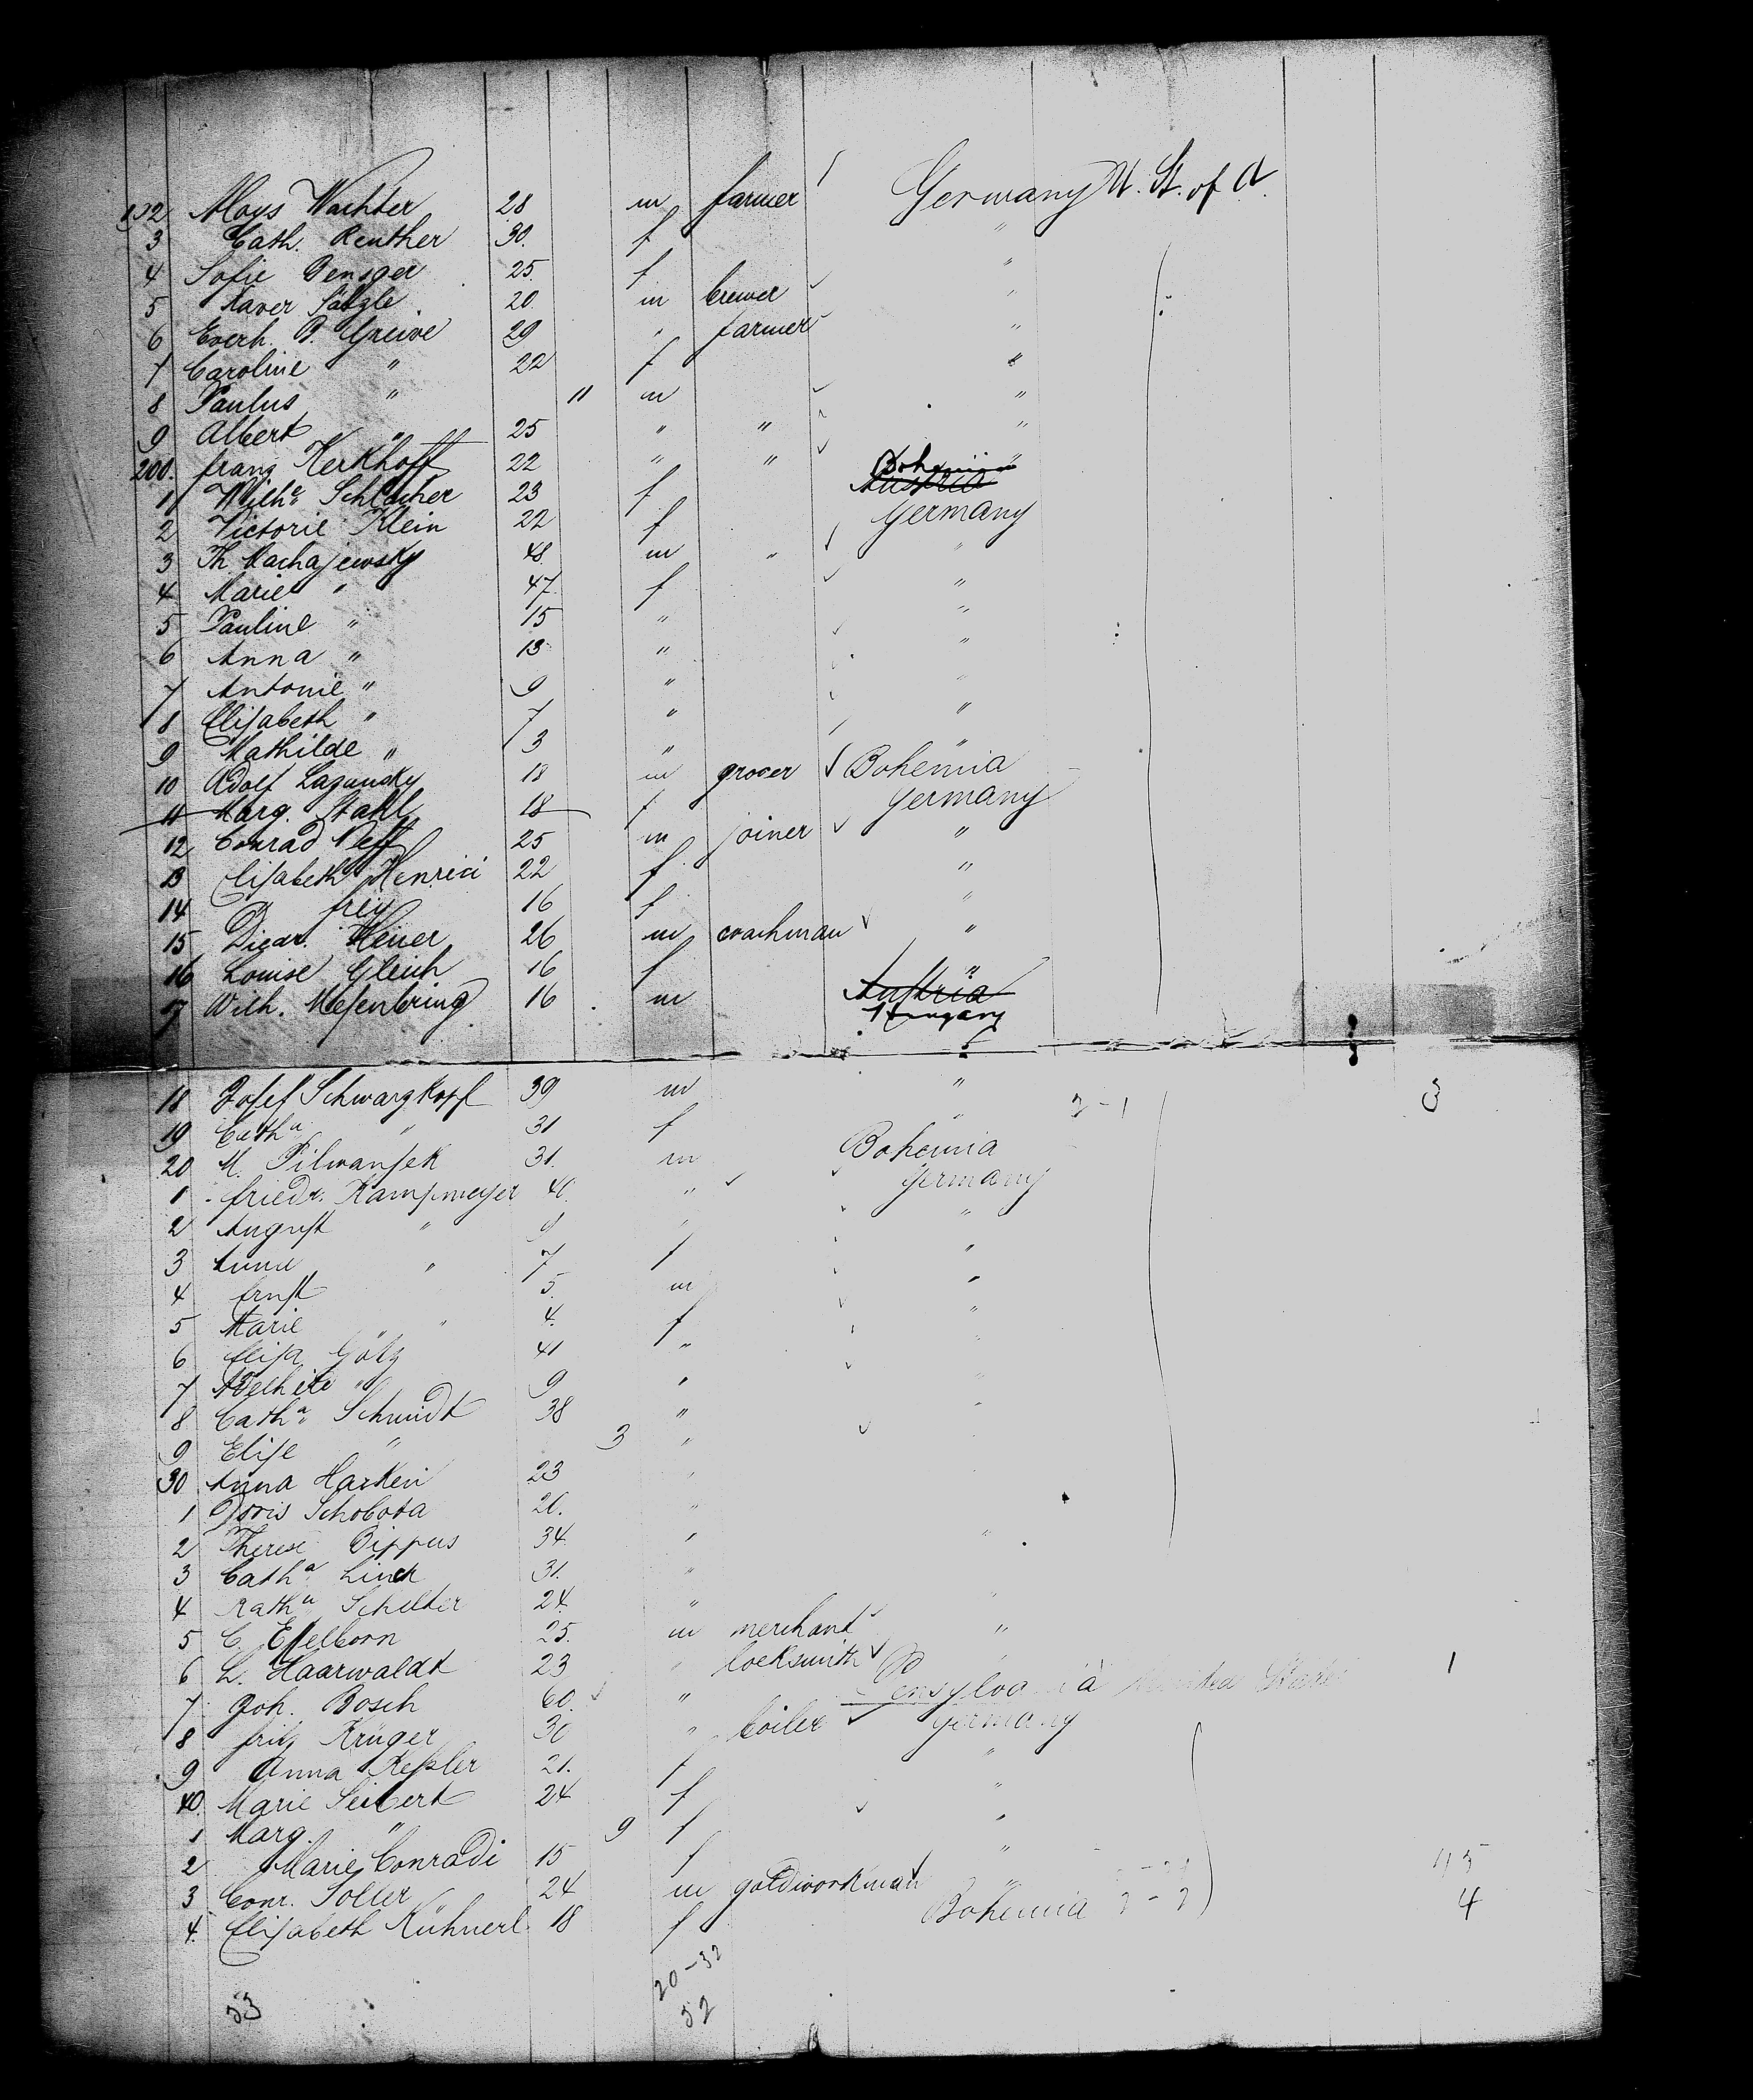 192 Aloys Wachter 28 m farmer Germany U. St. of A.
3 Cath. Reuther 30. f "
4 Sofie Gensger 25 f "
5 Xaver Sätzle 20 m brewer "
6 Everh. B. Greive 29 " farmer "
7 Caroline " 22 f "
8 Paulus " 11 m "
9 Albert " 25 " " "
200. franz Kerkhoff 22 " " "
1 Wilhe Schlacher 23 f Bohemia Austria
2 Victorie Klein 22 f Germany
3 Th. Machajewsky 48. m " "
4 Marie " 47 f "
5 Pauline " 15 " "
6 Anna " 13 " "
7 Antonie " 9 " "
8 Elisabeth " 7 " "
9 Mathilde " 3 " "
10 Adolf Lagunsky 18 m grocer Bohemia
11 Marg. Stahl 18 f Germany
12 Conrad Neff 25 m joiner "
13 Elisabeth Henrici 22 f "
14 B frey 16 f "
15 Heuer 26 m coachman "
16 Louise Gleich 16 f "
17 Wilh. Mesenbring 16 m Austria Hungary
18 Josef Schwarzkopf 39 m "
19 Catha " 31 f " 3-1 3
20 M. Pilwansek 31. m Bohemia
1 friedr. Kampmeyer 40. " Germany
2 August " 9 " "
3 Anna " 7 f "
4 Ernst 5. m "
5 Marie " 4. f "
6 Elisa Götz 41 " "
7 Adelheid " 9 " "
8 Catha Schmidt 38 " "
9 Elise " 3 "
30 Anna Harken 23 "
1 Doris Schobota 26. "
2 Therese Dippus 34 " "
3 Catha Linck 31. "
4 Katha Schelter 24. " "
5 C. Esselborn 25. m merchant "
6 L. Haarwaldt 23 " locksmith "
7 Joh. Bosch 60. " Pensylvania United States 1
8 fritz Krüger 30 " boiler Germany
9 Anna Kessler 21. f "
40. Marie Seibert 24 f "
1 Marg. " 9 f "
2 Marie Conradi 15 f "
3 Conr. Soller 24 m goldworkman " 45
4. Elisabeth Kühnerl 18 f Bohemia 2-2 4
20-32
53 52